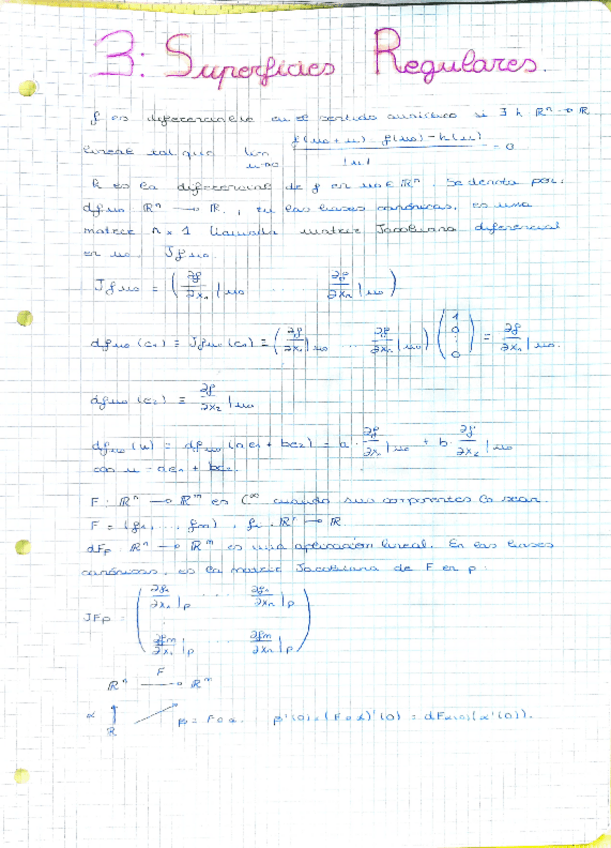 3: Superficies Regulares.
f es diferenciable en el sentido si ∃ h ℝⁿ → ℝ
f(u0 + u) - f(u0) - h(u)
lineal tal que lim = 0
u→0 |u|
h es la diferencial de f en u0 ∈ ℝⁿ. Se denota por:
dfu0 ℝⁿ → ℝ., en las bases canónicas, es una
matriz n x 1 llamada matriz Jacobiana diferencial
en u0. Jfu0.
Jfu0 = ( ∂f/∂x1 |u0 ... ∂f/∂xn |u0 )
dfu0 (e1) ≡ Jfu0 (e1) = ( ∂f/∂x1 |u0 ... ∂f/∂xn |u0 ) ( 1 0 ⋮ 0 ) = ∂f/∂x1 |u0.
dfu0 (e2) ≡ ∂f/∂x2 |u0
dfu0 (u) = dfu0 (ae1 + be2) = a · ∂f/∂x1 |u0 + b · ∂f/∂x2 |u0
con u = ae1 + be2.
F : ℝⁿ → ℝᵐ es C^∞ cuando sus componentes lo sean.
F = (f1, ... fm) , fi : ℝⁿ → ℝ
dFp ℝⁿ → ℝᵐ es una aplicación lineal. En las bases
canónicas, es la matriz Jacobiana de F en p.
JFp = ( ∂f1/∂x1 |p ... ∂f1/∂xn |p
∂fm/∂x1 |p ... ∂fm/∂xn |p )
F
ℝⁿ → ℝᵐ
α ↑ ↗ β = F o α. β'(0) = (F o α)'(0) = dFα(0)(α'(0)).
ℝ